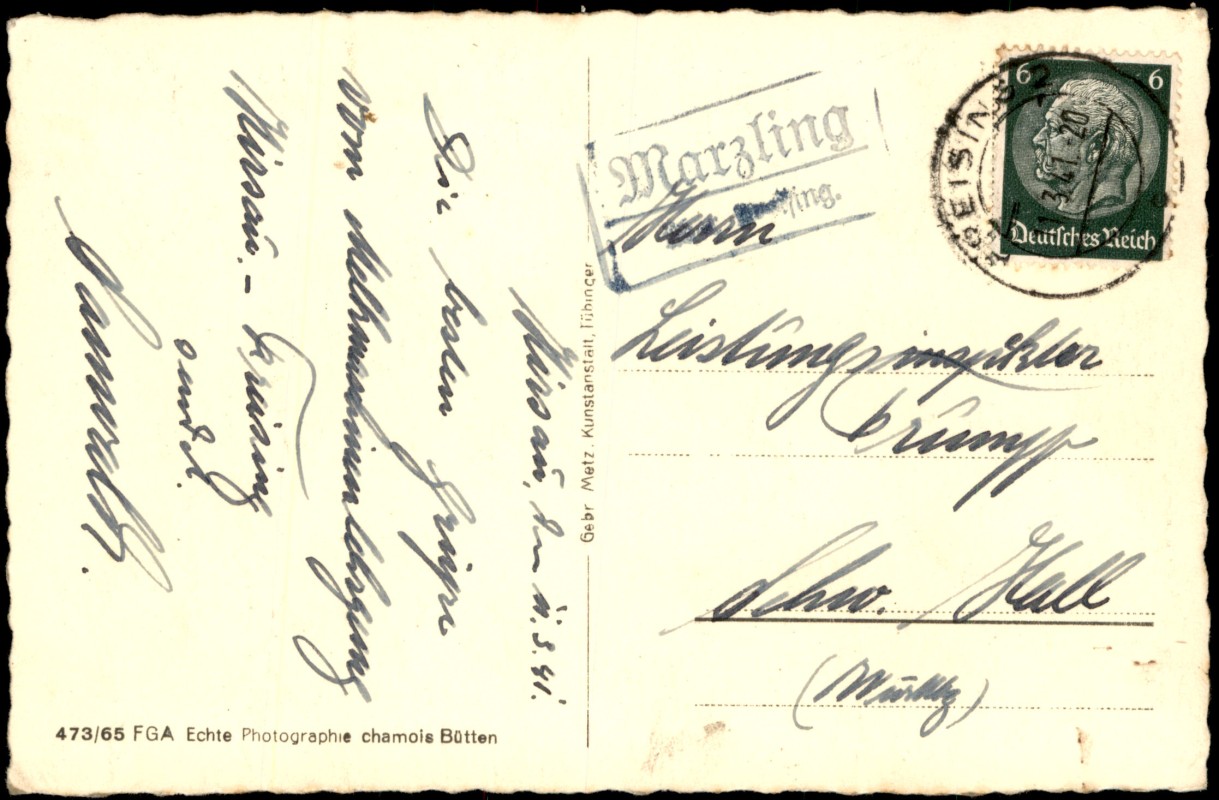 Hirsau, den 11.3.41.
Die besten Grüße
vom Melkmaschinenlehrgang
Hirsau. - Freising
sendet
Gebr. Metz. Kunstanstalt, Tübingen
473/65 FGA Echte Photographie chamois Bütten
Marzling
sing.
FREISING 2
3.41.-20
6 6
Deutsches Reich
Herrn
Leistungsinspektor
Trumpp
Schw. Hall
(Württbg)